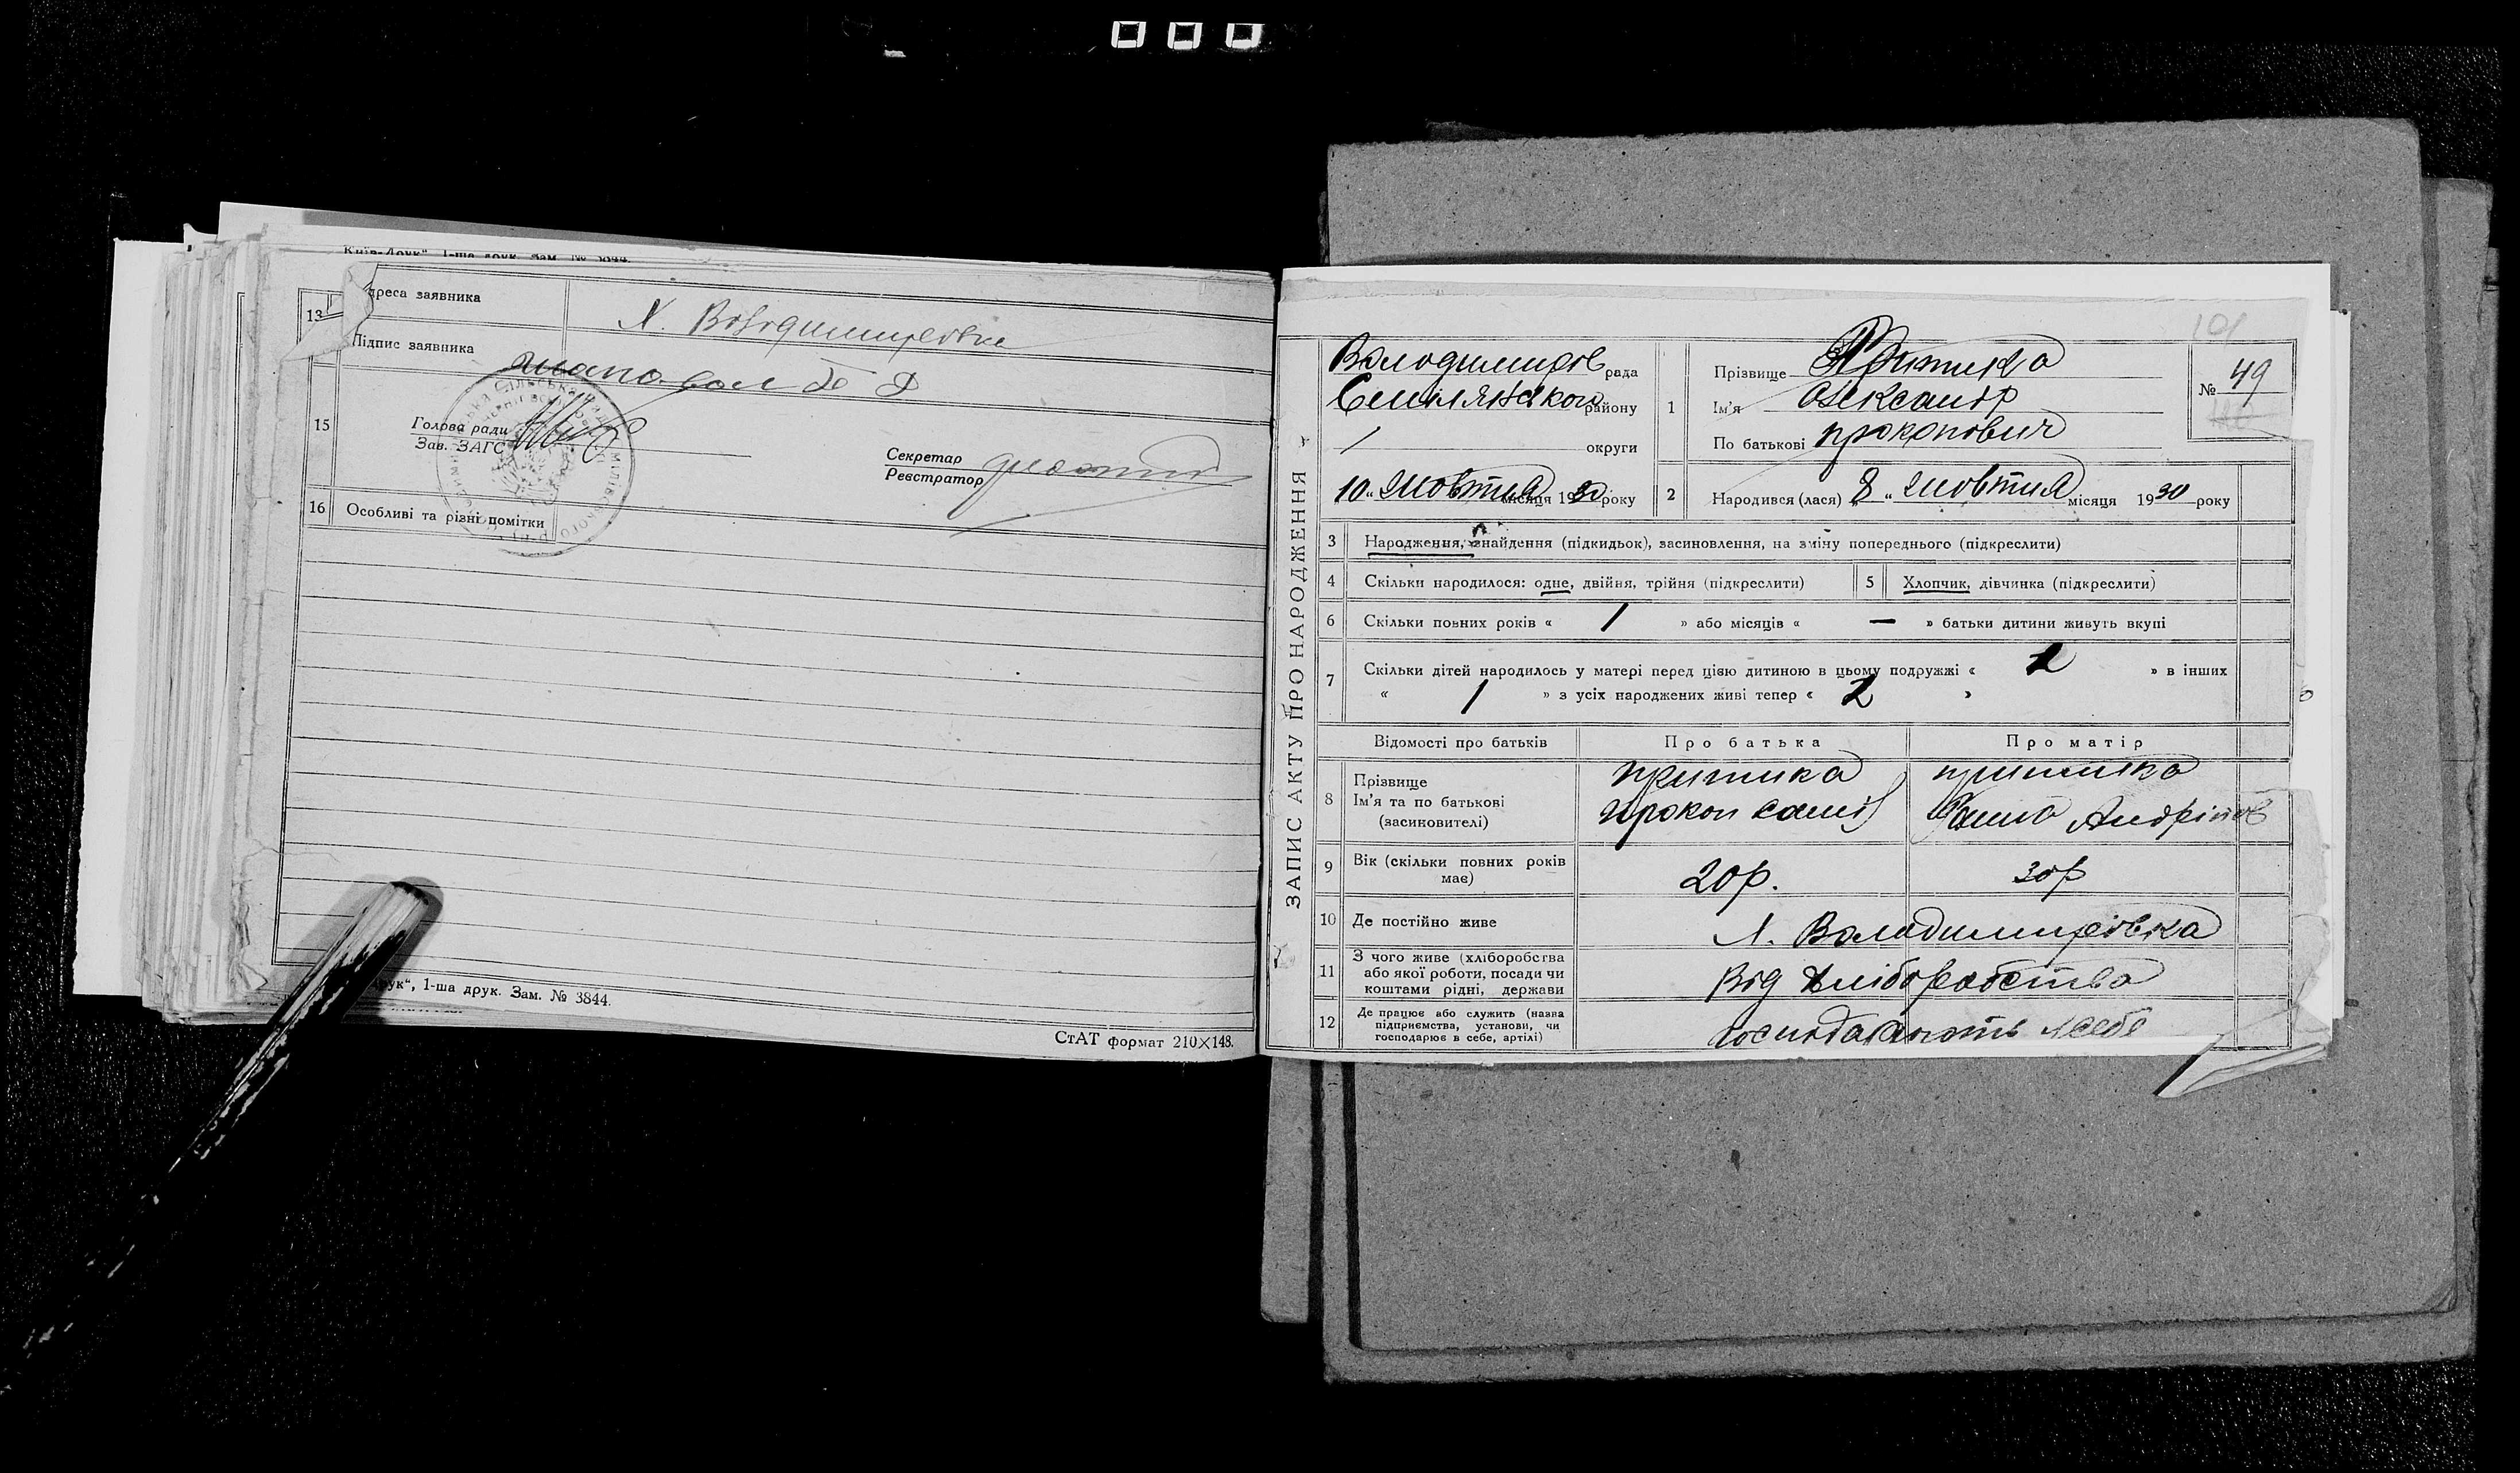 Київ-Друк“, 1-ша друк. Зам. № 3844.
13
дреса заявника
Х. Володимирівка
Підпис заявника
15
Голова ради
Зав. ЗАГС
Секретар
Реєстратор
16 Особливі та різні помітки
ук“, 1-ша друк. Зам. № 3844.
СтАТ формат 210×148.
ЗАПИС АКТУ ПРО НАРОДЖЕННЯ
101
Володимирів рада
Смілянського району
/ округи
10 „ жовтня місяця 1930 року
1
Прізвище Притика
Ім’я Олександр
По батькові прокопович
№ 49
2 Народився (лася) „ 8 „ жовтня місяця 1930 року
3 Народження, знайдення (підкидьок), засиновлення, на зміну попереднього (підкреслити)
4 Скільки народилося: одне, двійня, трійня (підкреслити)
5 Хлопчик, дівчинка (підкреслити)
6 Скільки повних років « 1 » або місяців « — » батьки дитини живуть вкупі
7 Скільки дітей народилось у матері перед цією дитиною в цьому подружжі « » в інших
« 1 » з усіх народжених живі тепер « 2 »
Відомості про батьків Про батька Про матір
8
Прізвище
Ім’я та по батькові
(засиновителі)
притика
Прокоп
притика
Андріїв
9 Вік (скільки повних років
має)
20р.
30р
10 Де постійно живе
Х. Володимирівка
11 З чого живе (хліборобства
або якої роботи, посади чи
коштами рідні, держави
Від хліборобства
12 Де працює або служить (назва
підприємства, установи, чи
господарює в себе, артілі)
господарюють у себе